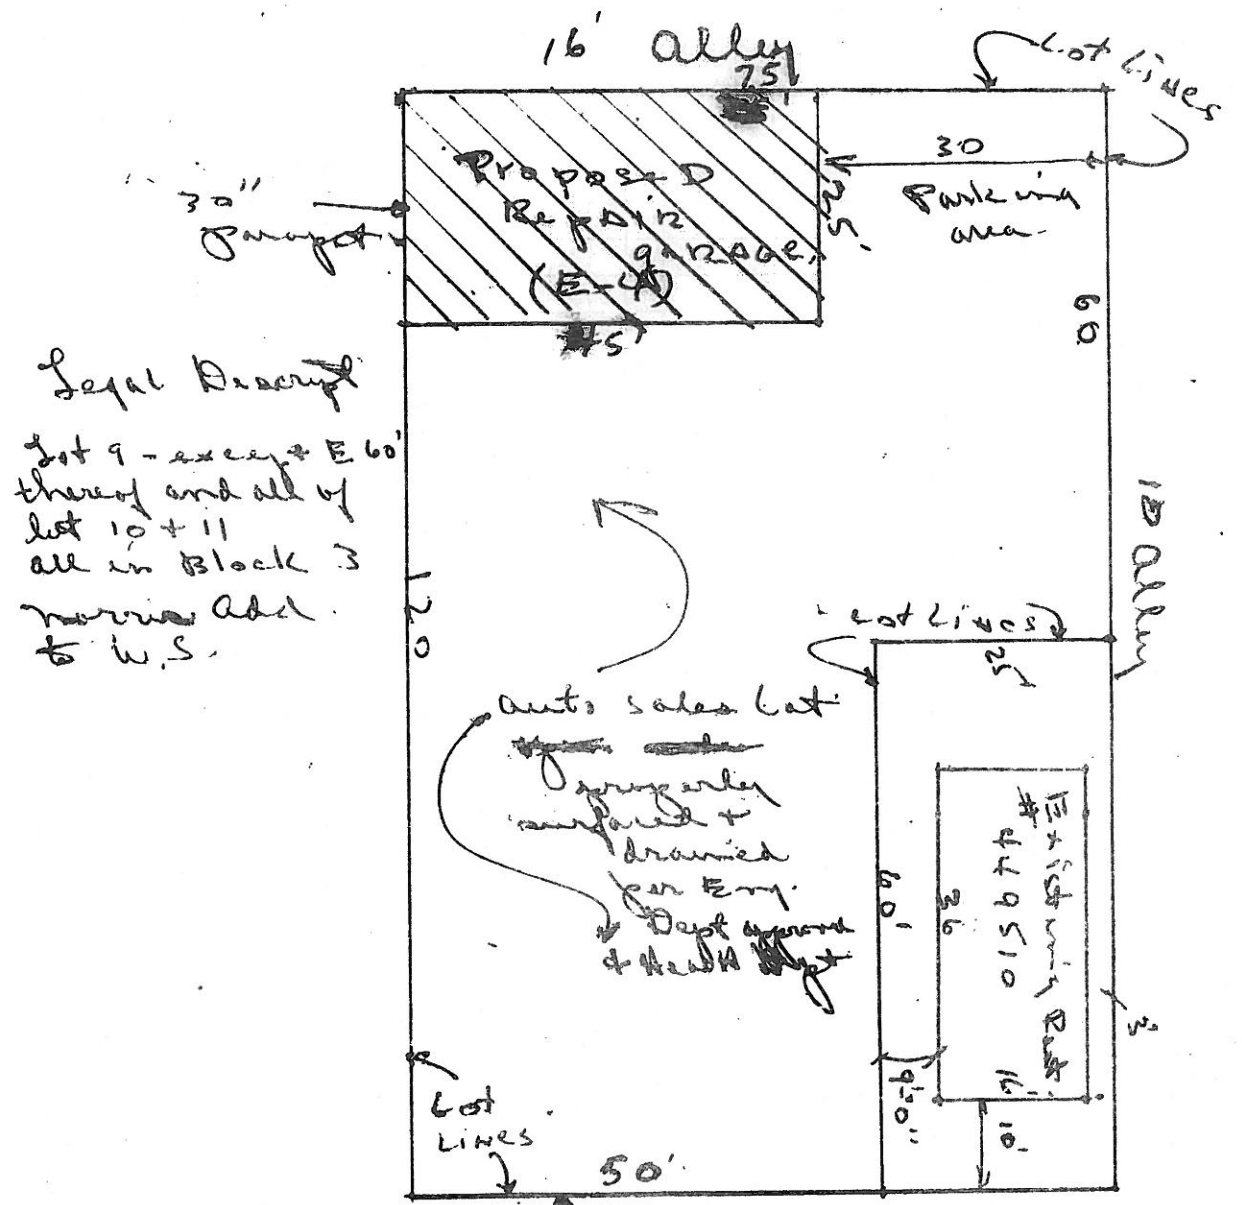 16' Alley
Lot Lines
75'
30
Parking
area.
Proposed
Repair
garage,
(E-4)
25'
30"
Parapet
45'
60
Legal Descript
Lot 9 - except E 60'
thereof and all of
lot 10 + 11
all in Block 3
Norris Add.
to W.S.
120
10 Alley
Lot Lines
25'
auto sales Lot
properly
surfaced +
drained
per Eng.
Dept approval
+ Health Dept
60'
36
Existing Rest.
# 449510
16'
3'
9'-0"
10'
Lot
Lines
50'